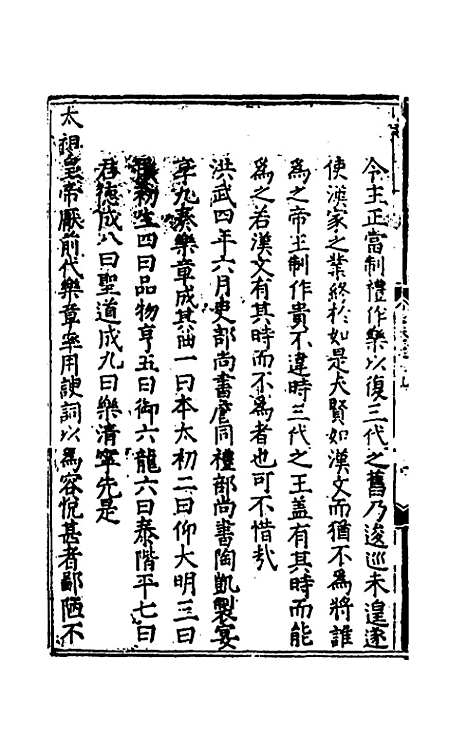 令主正當制禮作樂以復三代之舊乃逡巡未遑遂
使漢家之業終於如是夫賢如漢文而猶不為將誰
為之帝王制作貴不違時三代之王盖有其時而能
為之若漢文有其時而不為者也可不惜㦲
洪武四年六月吏部尚書詹同禮部尚書陶凱製宴
享九奏樂章成其曲一曰本太初二曰仰大明三曰
民初生四曰品物亨五曰御六龍六曰泰階平七曰
君徳成八曰聖道成九曰樂清寧先是
太祖皇帝厭前代樂章率用諛詞以為容悅甚者鄙陋不